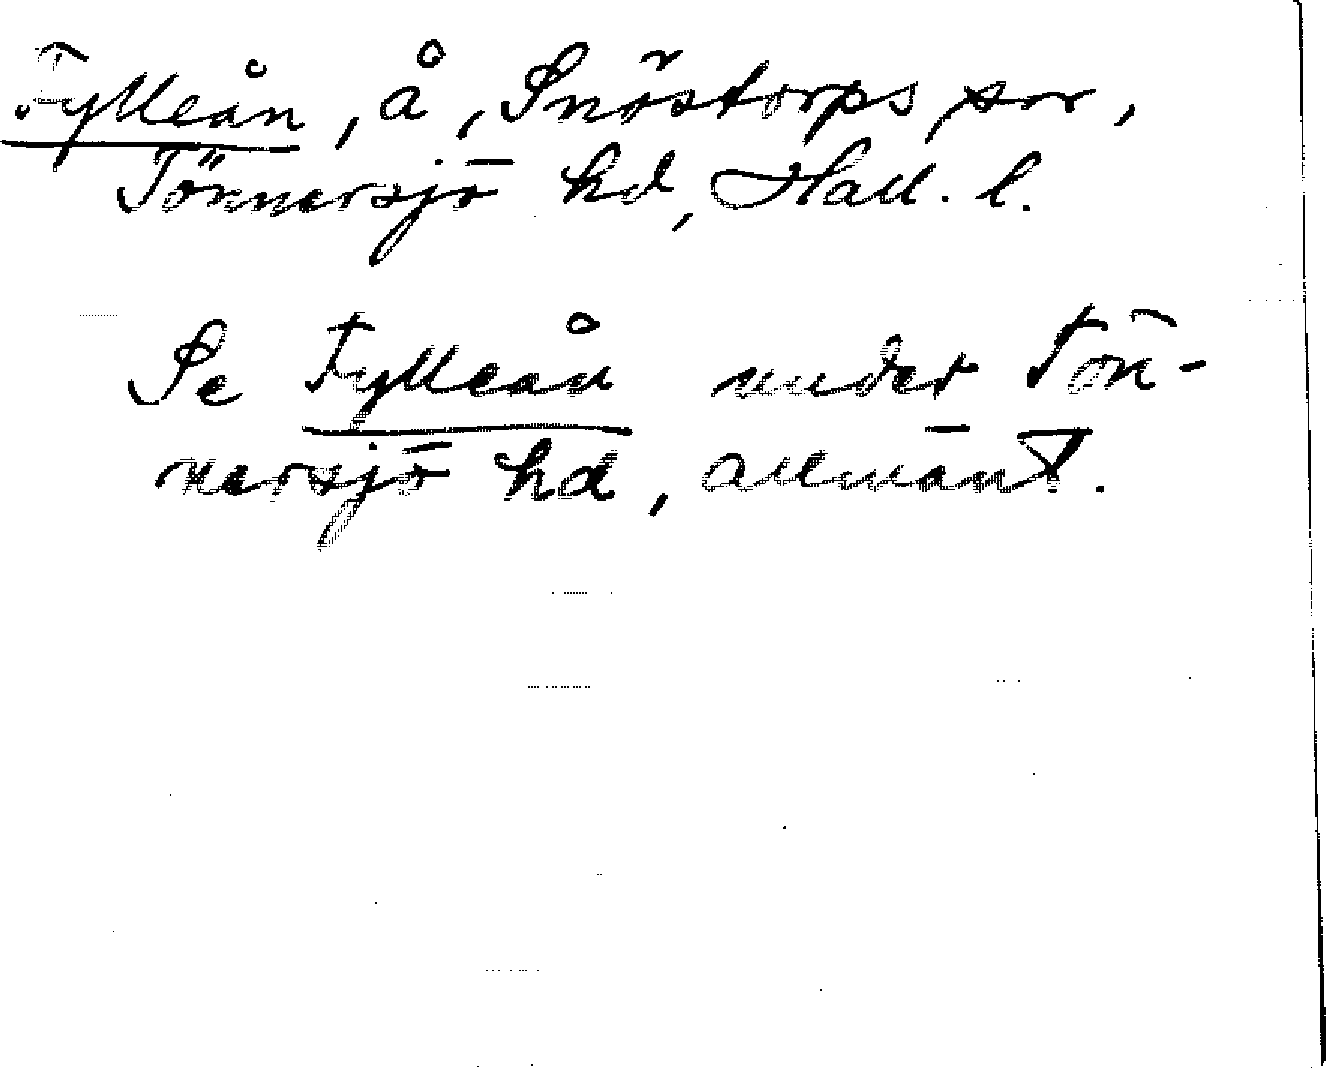 Fylleån, å, Snöstorps sn,
Tönnersjö hd, Hall. l.
Se Fylleån under Tön-
nersjö hd, allmänt.